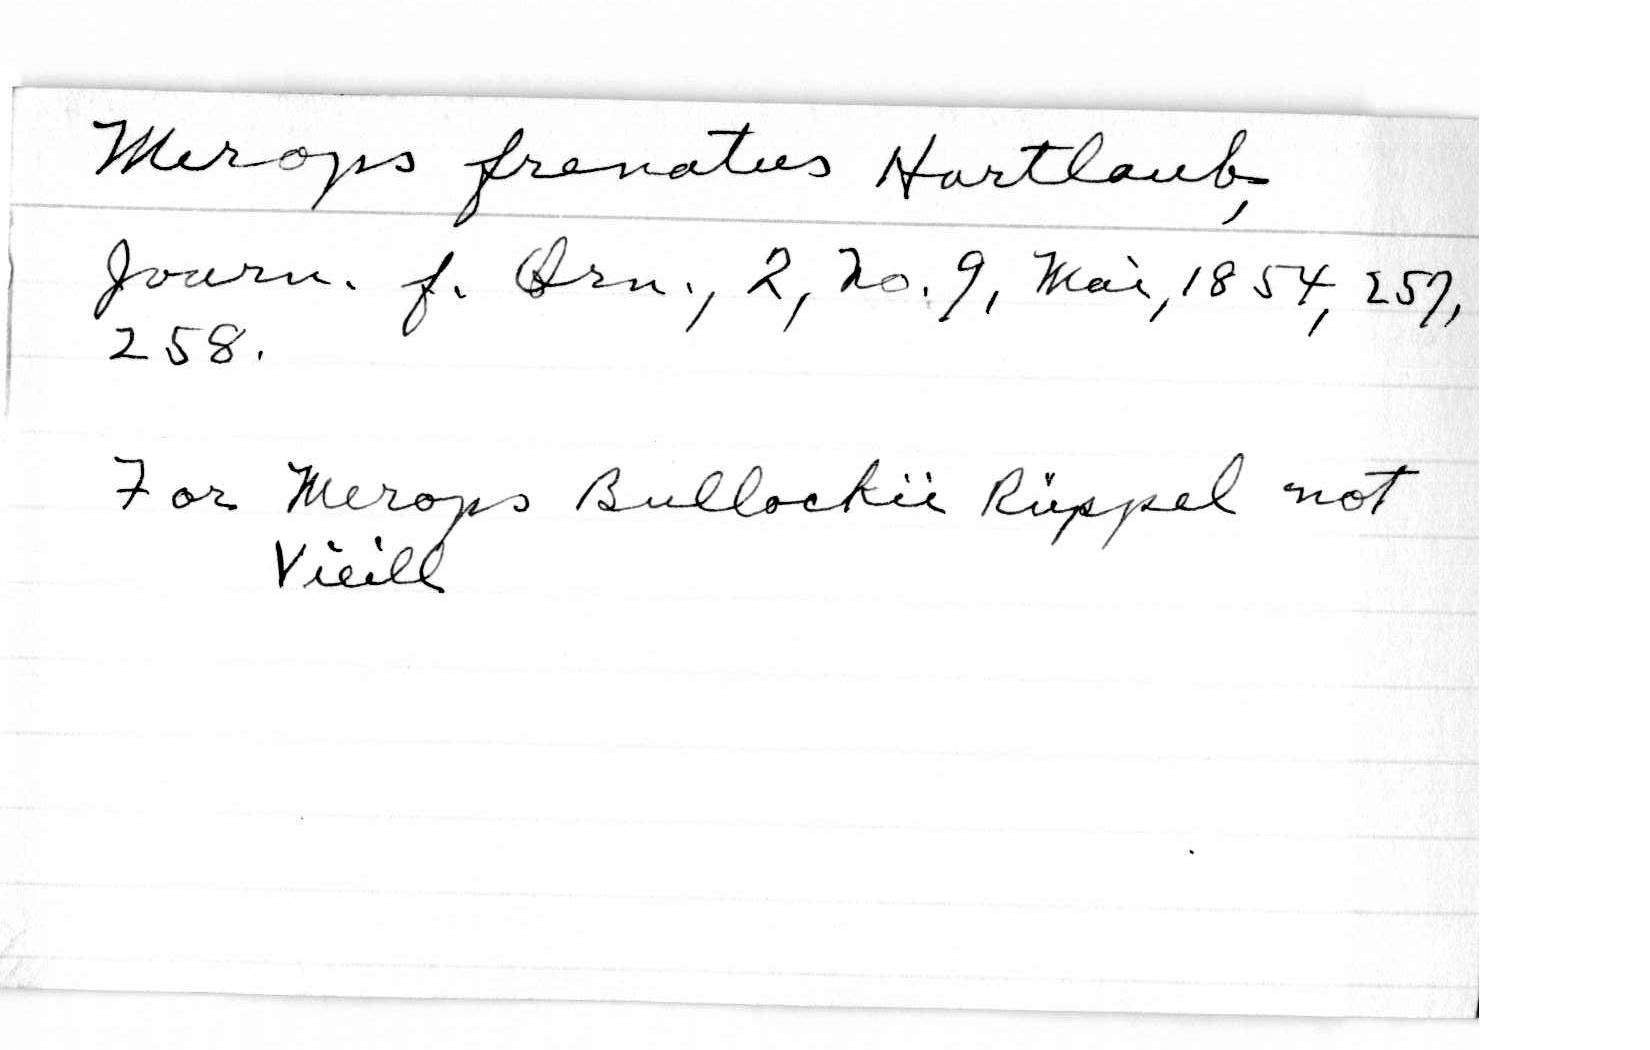 Merops frenatus Hartlaub,
Journ. f. Orn., 2, No. 9, Mai, 1854, 257,
258.
For Merops Bullockii Rüppel not
Vieill